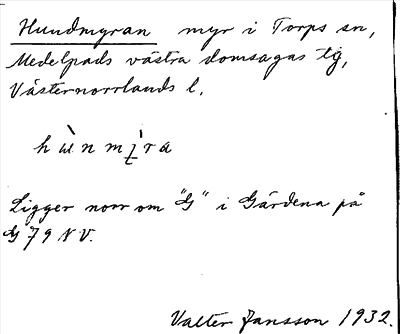 Hundmyran myr i Torps sn,
Medelpads västra domsagas tg,
Västernorrlands l.
Ligger norr om "G" i Gärdena på
G 79 NV.
Valter Jansson 1932.